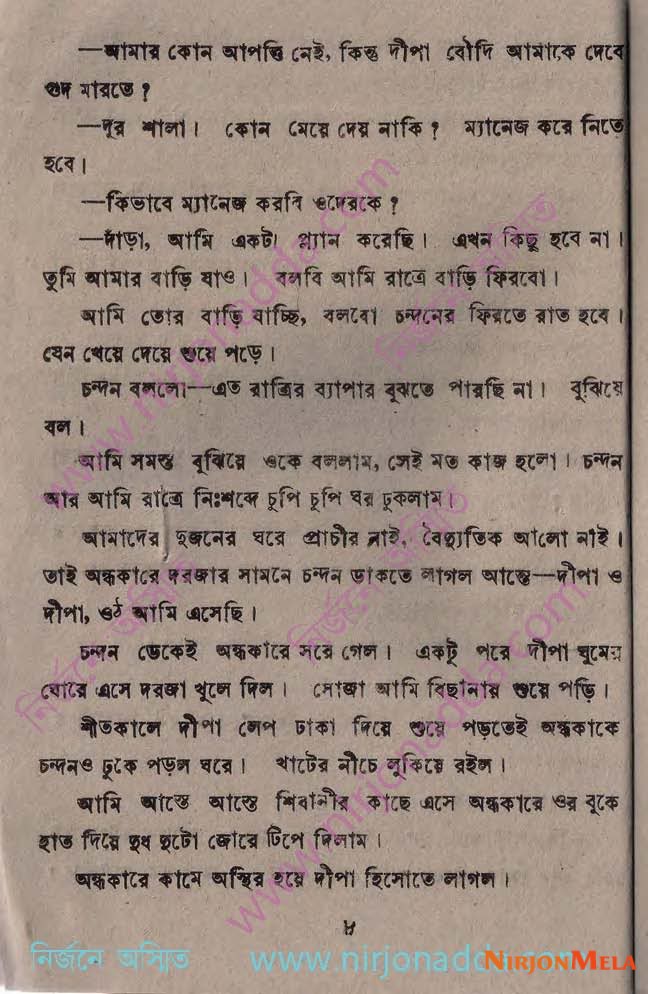 —আমার কোন আপত্তি নেই, কিন্তু দীপা বৌদি আমাকে দেবে
গুদ মারতে ?
—দূর শালা । কোন মেয়ে দেয় নাকি ? ম্যানেজ করে নিতে
হবে ।
—কিভাবে ম্যানেজ করবি ওদেরকে ?
—দাঁড়া, আমি একটা প্ল্যান করেছি । এখন কিছু হবে না ।
তুমি আমার বাড়ি যাও । বলবি আমি রাত্রে বাড়ি ফিরবো ।
আমি তোর বাড়ি যাচ্ছি, বলবো চন্দনের ফিরতে রাত হবে ।
যেন খেয়ে দেয়ে শুয়ে পড়ে ।
চন্দন বললো—এত রাত্রির ব্যাপার বুঝতে পারছি না । বুঝিয়ে
বল ।
আমি সমস্ত বুঝিয়ে ওকে বললাম, সেই মত কাজ হলো । চন্দন
আর আমি রাত্রে নিঃশব্দে চুপি চুপি ঘর ঢুকলাম ।
আমাদের দুজনের ঘরে প্রাচীর নাই, বৈদ্যুতিক আলো নাই ।
তাই অন্ধকারে দরজার সামনে চন্দন ডাকতে লাগল আস্তে—দীপা ও
দীপা, ওঠ আমি এসেছি ।
চন্দন ডেকেই অন্ধকারে সরে গেল । একটু পরে দীপা ঘুমের
ঘোরে এসে দরজা খুলে দিল । সোজা আমি বিছানায় শুয়ে পড়ি ।
শীতকালে দীপা লেপ ঢাকা দিয়ে শুয়ে পড়তেই অন্ধকাকে
চন্দনও ঢুকে পড়ল ঘরে । খাটের নীচে লুকিয়ে রইল ।
আমি আস্তে আস্তে শিবানীর কাছে এসে অন্ধকারে ওর বুকে
হাত দিয়ে দুধ দুটো জোরে টিপে দিলাম ।
অন্ধকারে কামে অস্থির হয়ে দীপা হিসোতে লাগল ।
৮
নির্জনে অস্মিত www.nirjonadda.com NIRJONMELA